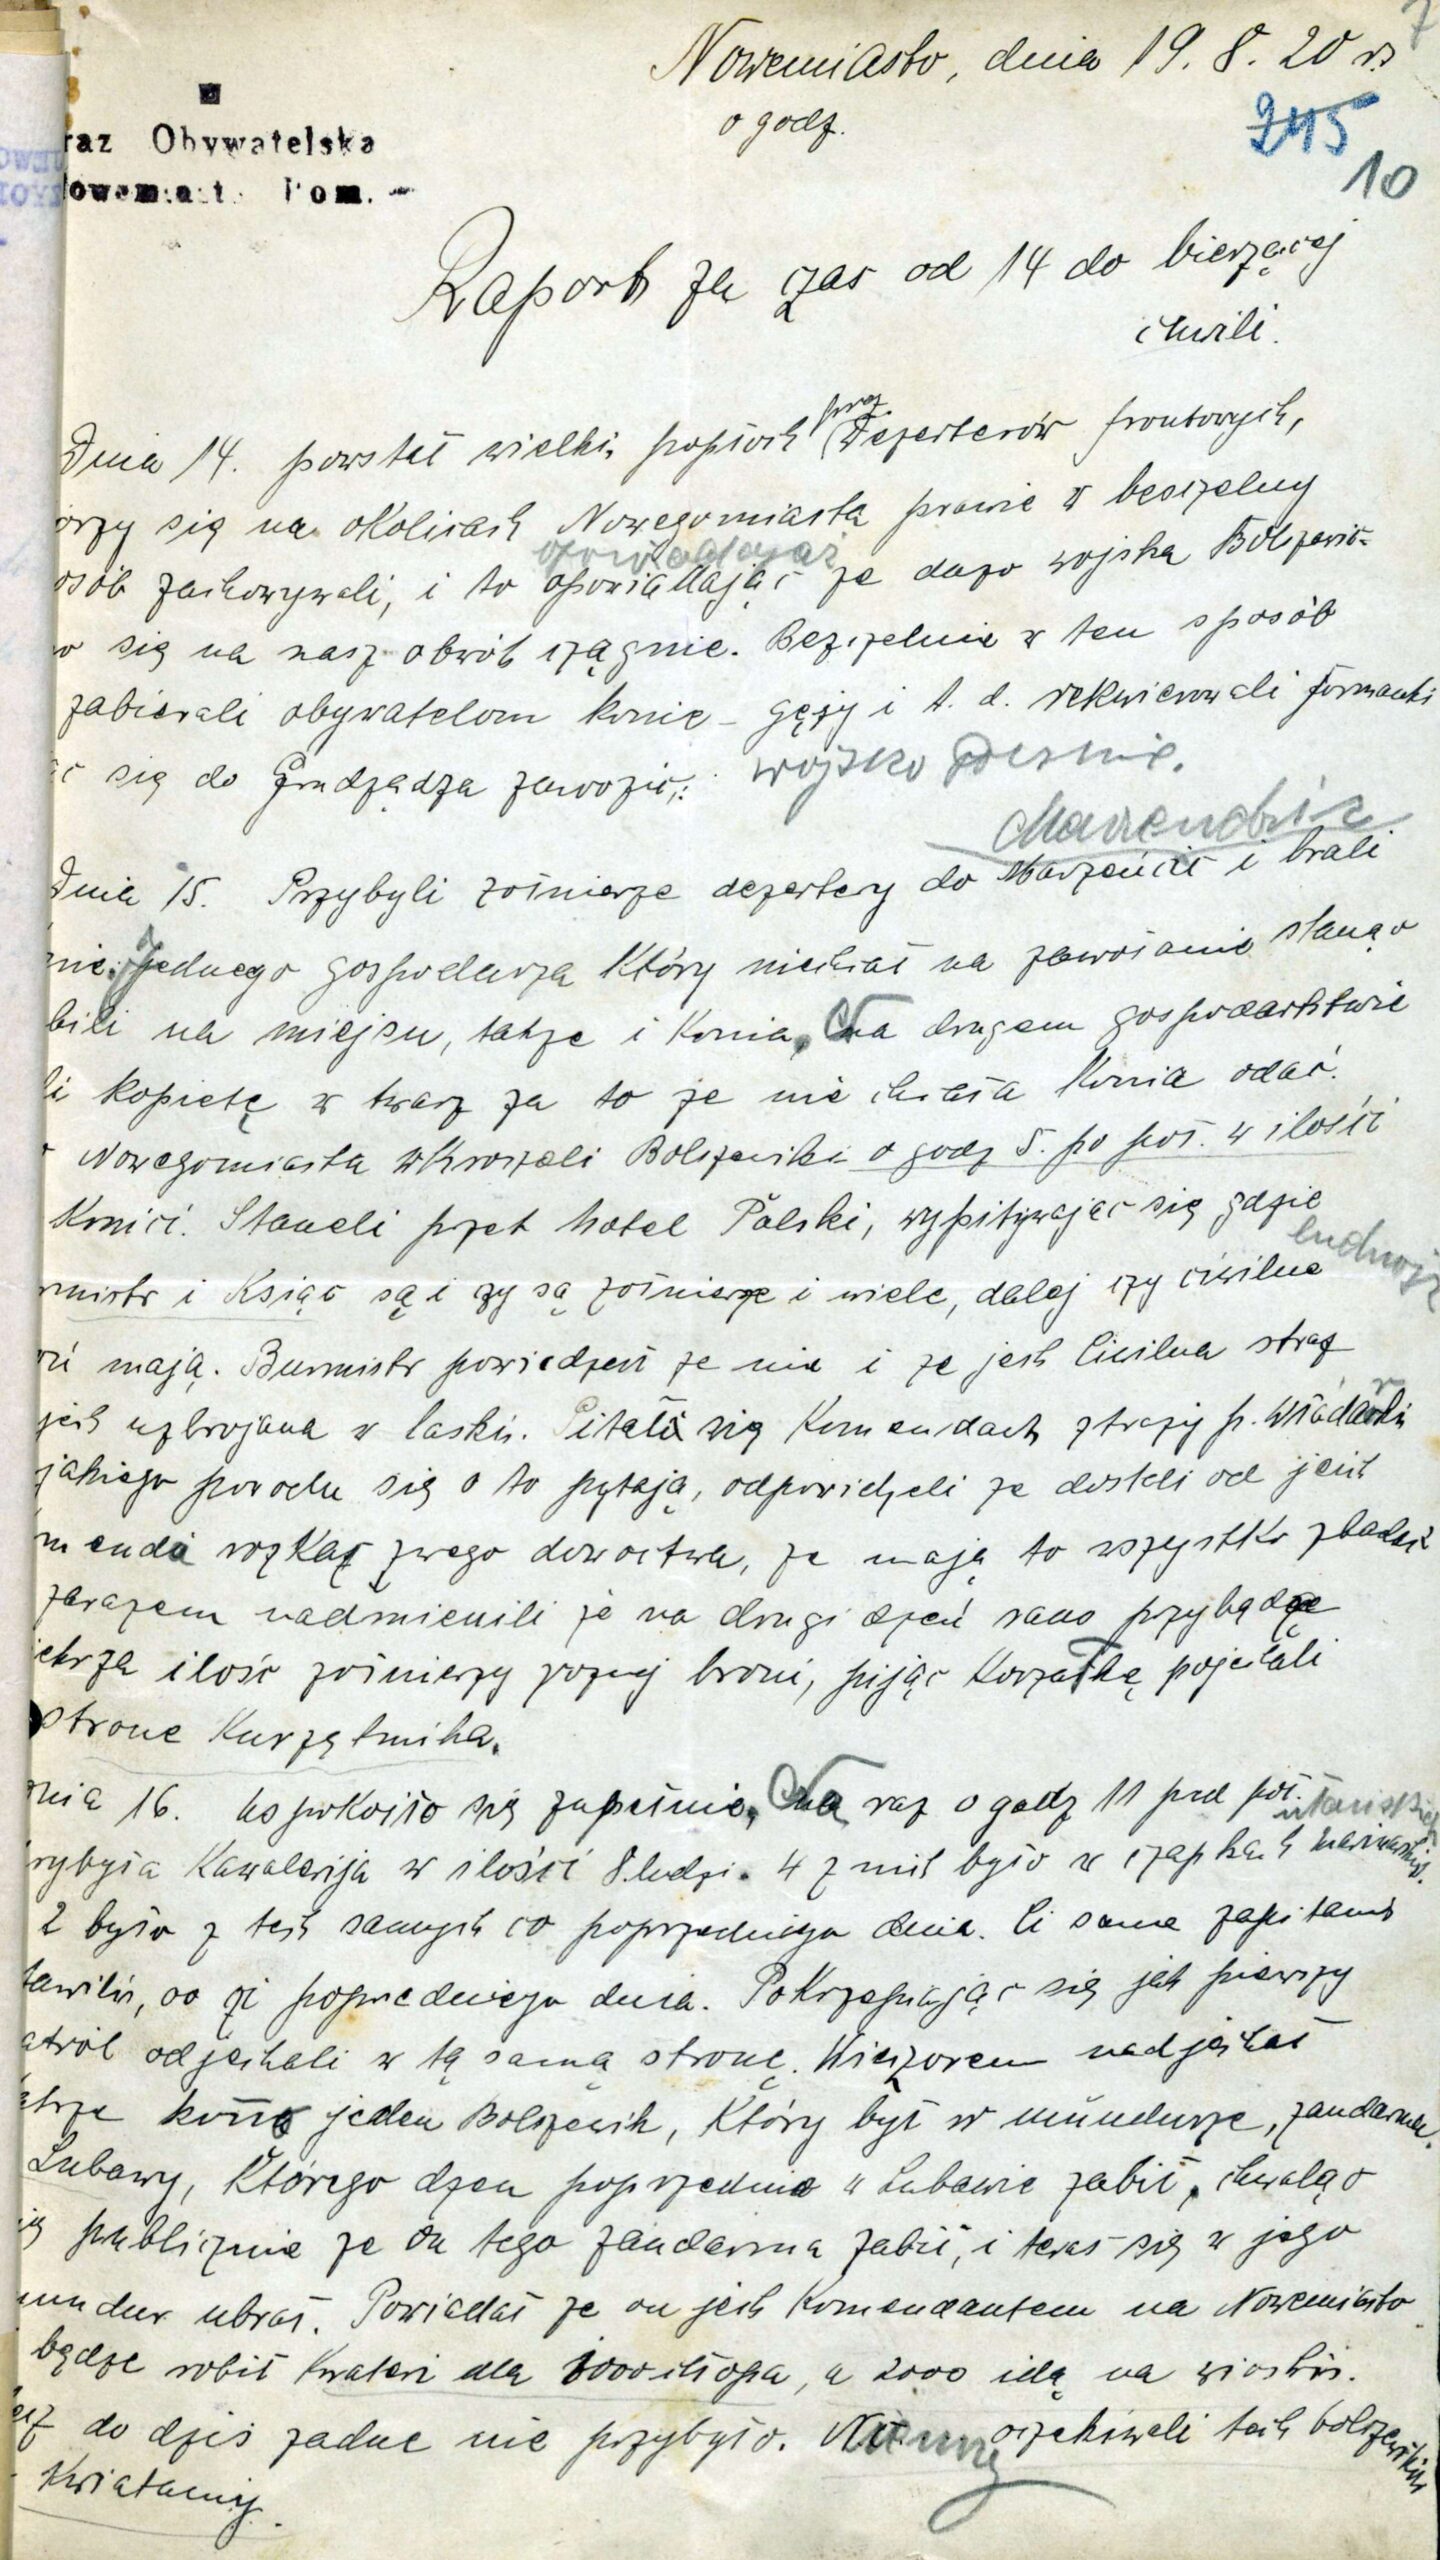 7
Nowemiasto, dnia 19. 8. 20 r.
o godz.
245
10
raz Obywatelska
Pom. -
Raport za czas od 14 do bierzącej
chwili.
Dnia 14. powstał wielki popłoch prez Dezerterów frontowych,
órzy się na okolicach Nowegomiasta prawie w besczelny
opowiadając
osób zachowywali, i to opowiadając ze duzo wojska Bolszewic-
o się na nasz obwód czągnie. Bezczelnie w ten sposób
zabierali obywatelom konie - gęsy i t. d. rekwierowali formanki
ć się do Grudządza zawozić.
wojsko Polskie.
Dnia 15. Przybyli zołnierze dezertery do Marzencic i brali
nie. Jednego gospodarza Który niechiał na zawołanie stanąo
bili na miejscu, takze i Konia, Na drugem gospodarstwie
li kopietę w twarz za to ze nie chciała Konia odać.
Nowegomiasta wkroczeli Bolszewiki o godz 5. po poł. w ilości
Konici. Staneli przet hotel Polski, wypitywając się gdzie
rmistr i Ksiąc są i czy są zołnierze i wiele, dalej czy ciwilne
oń mają. Burmistr powiedzeł ze nie i ze jest Ciwilna straz
jest uzbrojana w laski. Pitał się Komendant ztrazy p.
jakiego powodu się o to pytają, odpowidzeli ze dostali od jech
menda rozkaz zwego dowoctwa, ze mają to wszystko zbadać
zarazem nadmienili ze na drugi dzeń rano przybądze
ilośc zołnierzy roznej broni, pijąc Korzałkę pojechali
strone Kurzętnika.
nia 16. uspokoiło się zupełnie, Na raz o godz 11 pred poł.
rybyła Kawalerija w ilości 8 ludzi. 4 z nich było w czapkach
2 było z tech samych co poprzedniego dnia. Ci same zapitania
tawili, co ci popredniego dnia. Pokrzepiając się jak pierwszy
atrol odjechali w tą samą stronę. Wieczorem nadjechał
jeden Bolszewik, Który był w mundurze, zandarma
Lubawy, Którego dzen poprzednio w Lubawie zabił, chwaląo
ię publicznie ze on tego zandarma zabił, i teras się w jego
undur ubrał. Powiadał ze on jest Komendantem na Nowemiasto
bądze robił Kwateri dla 1000 chłopa, a 2000 idą na wioski.
do dzis zadne nie przybyło. oczekiwali tech bolszewików
Kwiatamy.